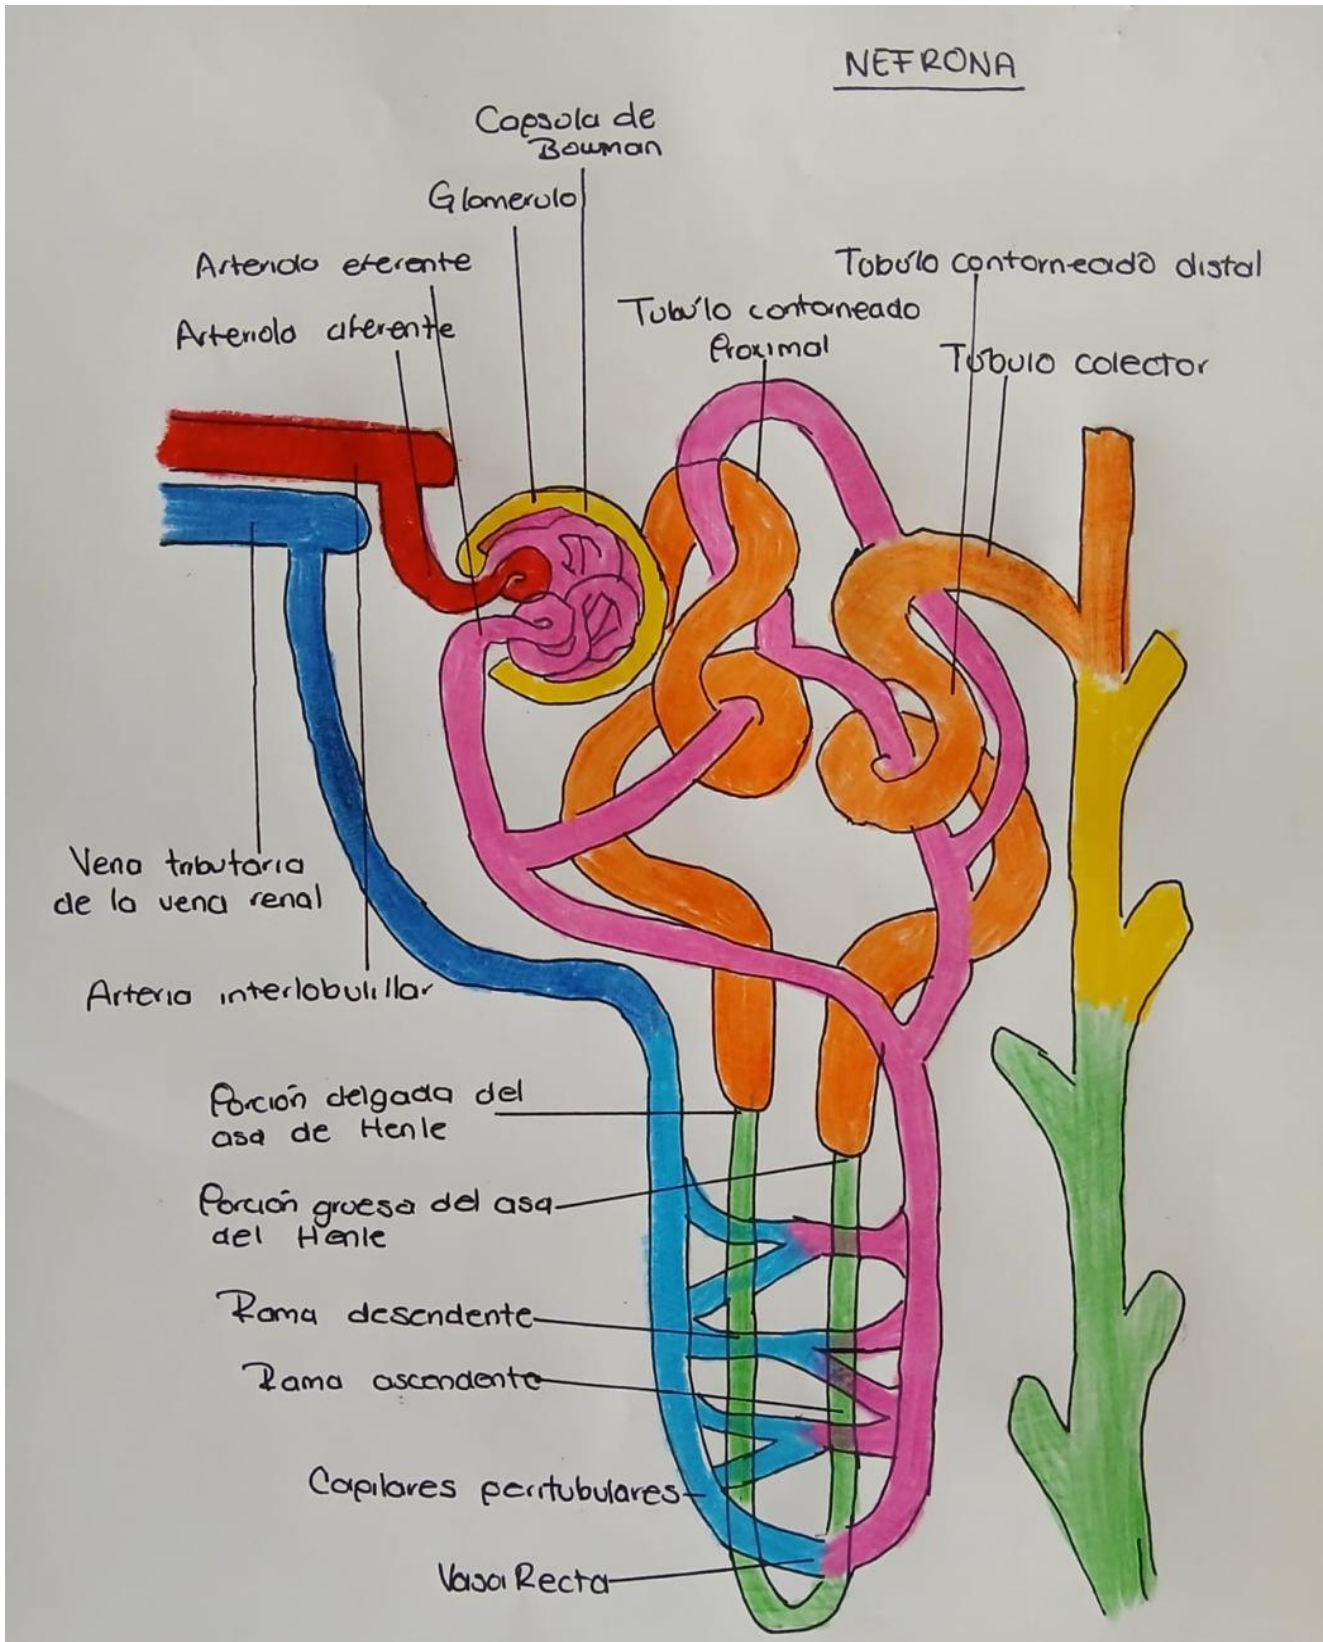 NEFRONA
Capsola de
Bowman
Glomerulo
Arteriola eferente
Arteriola aferente
Tobúlo contorneado distal
Tubúlo contorneado
Proximal
Túbulo colector
Vena tributaria
de la vena renal
Arteria interlobulillar
Porción delgada del
asa de Henle
Porción gruesa del asa
del Henle
Rama desendente
Rama ascendente
Capilares peritubulares
Vasa Recta